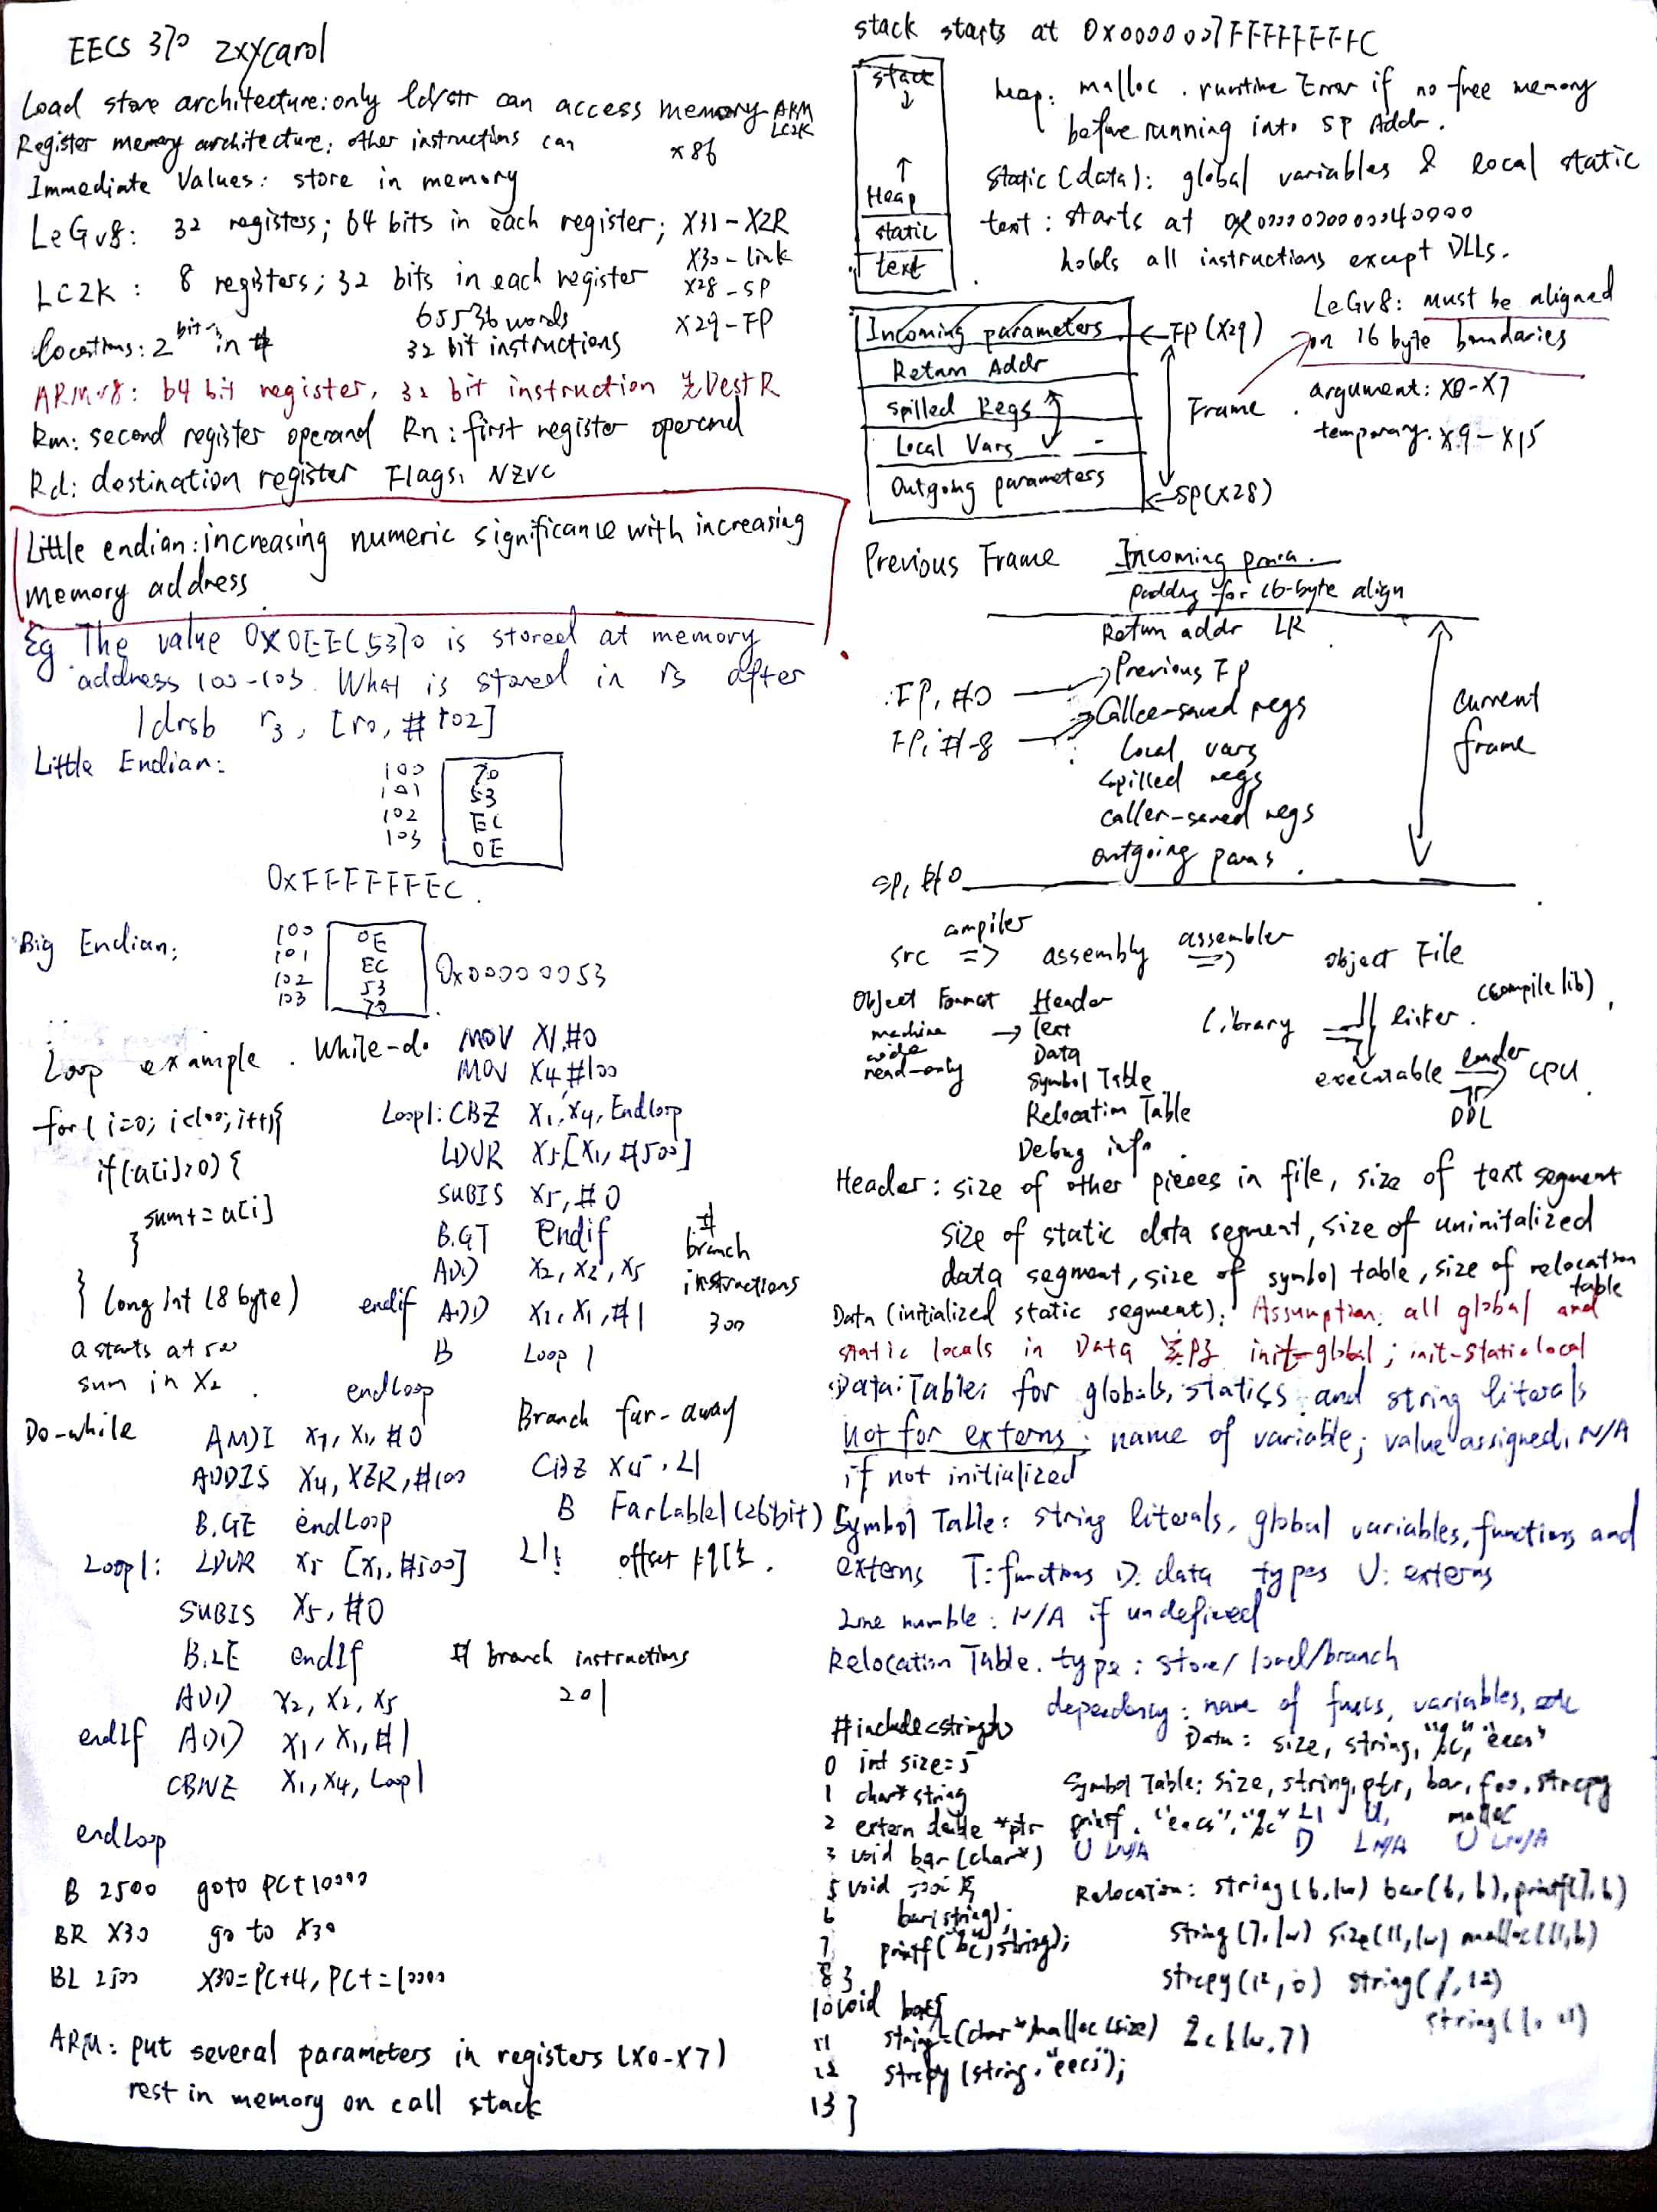 EECS 370 zxycarol
Load store architecture: only ld/str can access memory ARM LC2K
Register memory architecture: other instructions can x86
Immediate Values: store in memory
LeGv8: 32 registers; 64 bits in each register; X31-XZR
X30-link
LC2K: 8 registers; 32 bits in each register X28-SP
65536 words X29-FP
locations: 2^bit in # 32 bit instructions
ARMv8: 64 bit register, 32 bit instruction 无DestR
Rm: second register operand Rn: first register operand
Rd: destination register Flags: NZVC
Little endian: increasing numeric significance with increasing
memory address
Eg The value 0x0EEC5370 is stored at memory
address 100-103. What is stored in r3 after
ldrsb r3, [r0, #102]
Little Endian:
100 70
101 53
102 EC
103 0E
0xFFFFFFEC.
Big Endian:
100 0E
101 EC
102 53
103 70
0x00000053
Loop example. While-do
for(i=0; i<100; i++){
if(a[i]>0){
sum+=a[i]
}
} long int (8 byte)
a starts at 500
sum in X2.
MOV X1, #0
MOV X4 #100
Loop1: CBZ X1, X4, Endloop
LDUR X5 [X1, #500]
SUBIS X5, #0
B.GT Endif
ADD X2, X2, X5
endif ADD X1, X1, #1
B Loop 1
endloop
# branch
instructions
300
Do-while
X1, X1, #0
ADDIS X4, XZR, #100
B.GE endLoop
Loop1: LDUR X5 [X1, #500]
SUBIS X5, #0
B.LE endIf
ADD X2, X2, X5
endIf ADD X1, X1, #1
CBNZ X1, X4, Loop1
endLoop
# branch instructions
201
Branch far-away
CBZ X5, L1
B FarLable1 (26bit)
L1: offset
B 2500 goto PC+10000
BR X30 go to X30
BL 2500 X30=PC+4, PC+=10000
ARM: put several parameters in registers (X0-X7)
rest in memory on call stack
stack starts at 0x0000007FFFFFFFFC
stack
↓
↑
Heap
static
text
heap: malloc. runtime Error if no free memory
before running into SP Addr.
Static (data): global variables & local static
text: starts at 0x0000000000400000
holds all instructions except DLLs.
Incoming parameters ←FP (X29)
Return Addr
Spilled Regs
Local Vars
Outgoing parameters ←SP(X28)
Frame
LeGv8: must be aligned
on 16 byte boundaries
argument: X0-X7
temporary: X9-X15
Previous Frame Incoming para.
padding for 16-byte align
Return addr LR
FP, #0 → Previous FP
FP, #-8 → Callee-saved regs
Local vars
Spilled regs
caller-saved regs
outgoing params.
SP, #0
current
frame
src compiler => assembly assembler => object File
Library => linker. (compile lib)
executable loader => CPU
DDL
Object Format Header
machine code read-only → text
Data
Symbol Table
Relocation Table
Debug info
Header: size of other pieces in file, size of text segment
size of static data segment, size of uninitalized
data segment, size of symbol table, size of relocation table
Data (initialized static segment): Assumption: all global and
static locals in Data init-global; init-static local
Data: Table: for globals, statics and string literals
not for externs: name of variable; value assigned, N/A
if not initialized
Symbol Table: string literals, global variables, functions and
externs T: functions D: data types U: externs
Line numble: N/A if undefined
Relocation Table. type: store/load/branch
dependency: name of funcs, variables, etc
#include<string.h>
0 int size=5
1 char* string
2 extern double *ptr
3 void bar(char*)
5 void
6 bar(string);
7 printf("%c", string);
8 }
10 void
11 string=(char*)malloc(size)
12 strcpy(string, "eecs");
13 }
Data: size, string, "%c", "eecs"
Symbol Table: size, string, ptr, bar, foo, strcpy
printf, "eecs", "%c" L1 U, malloc
U LN/A D LN/A U LN/A
Relocation: string(6, lw) bar(6, b), printf(7, b)
string(7, lw) size(11, lw) malloc(11, b)